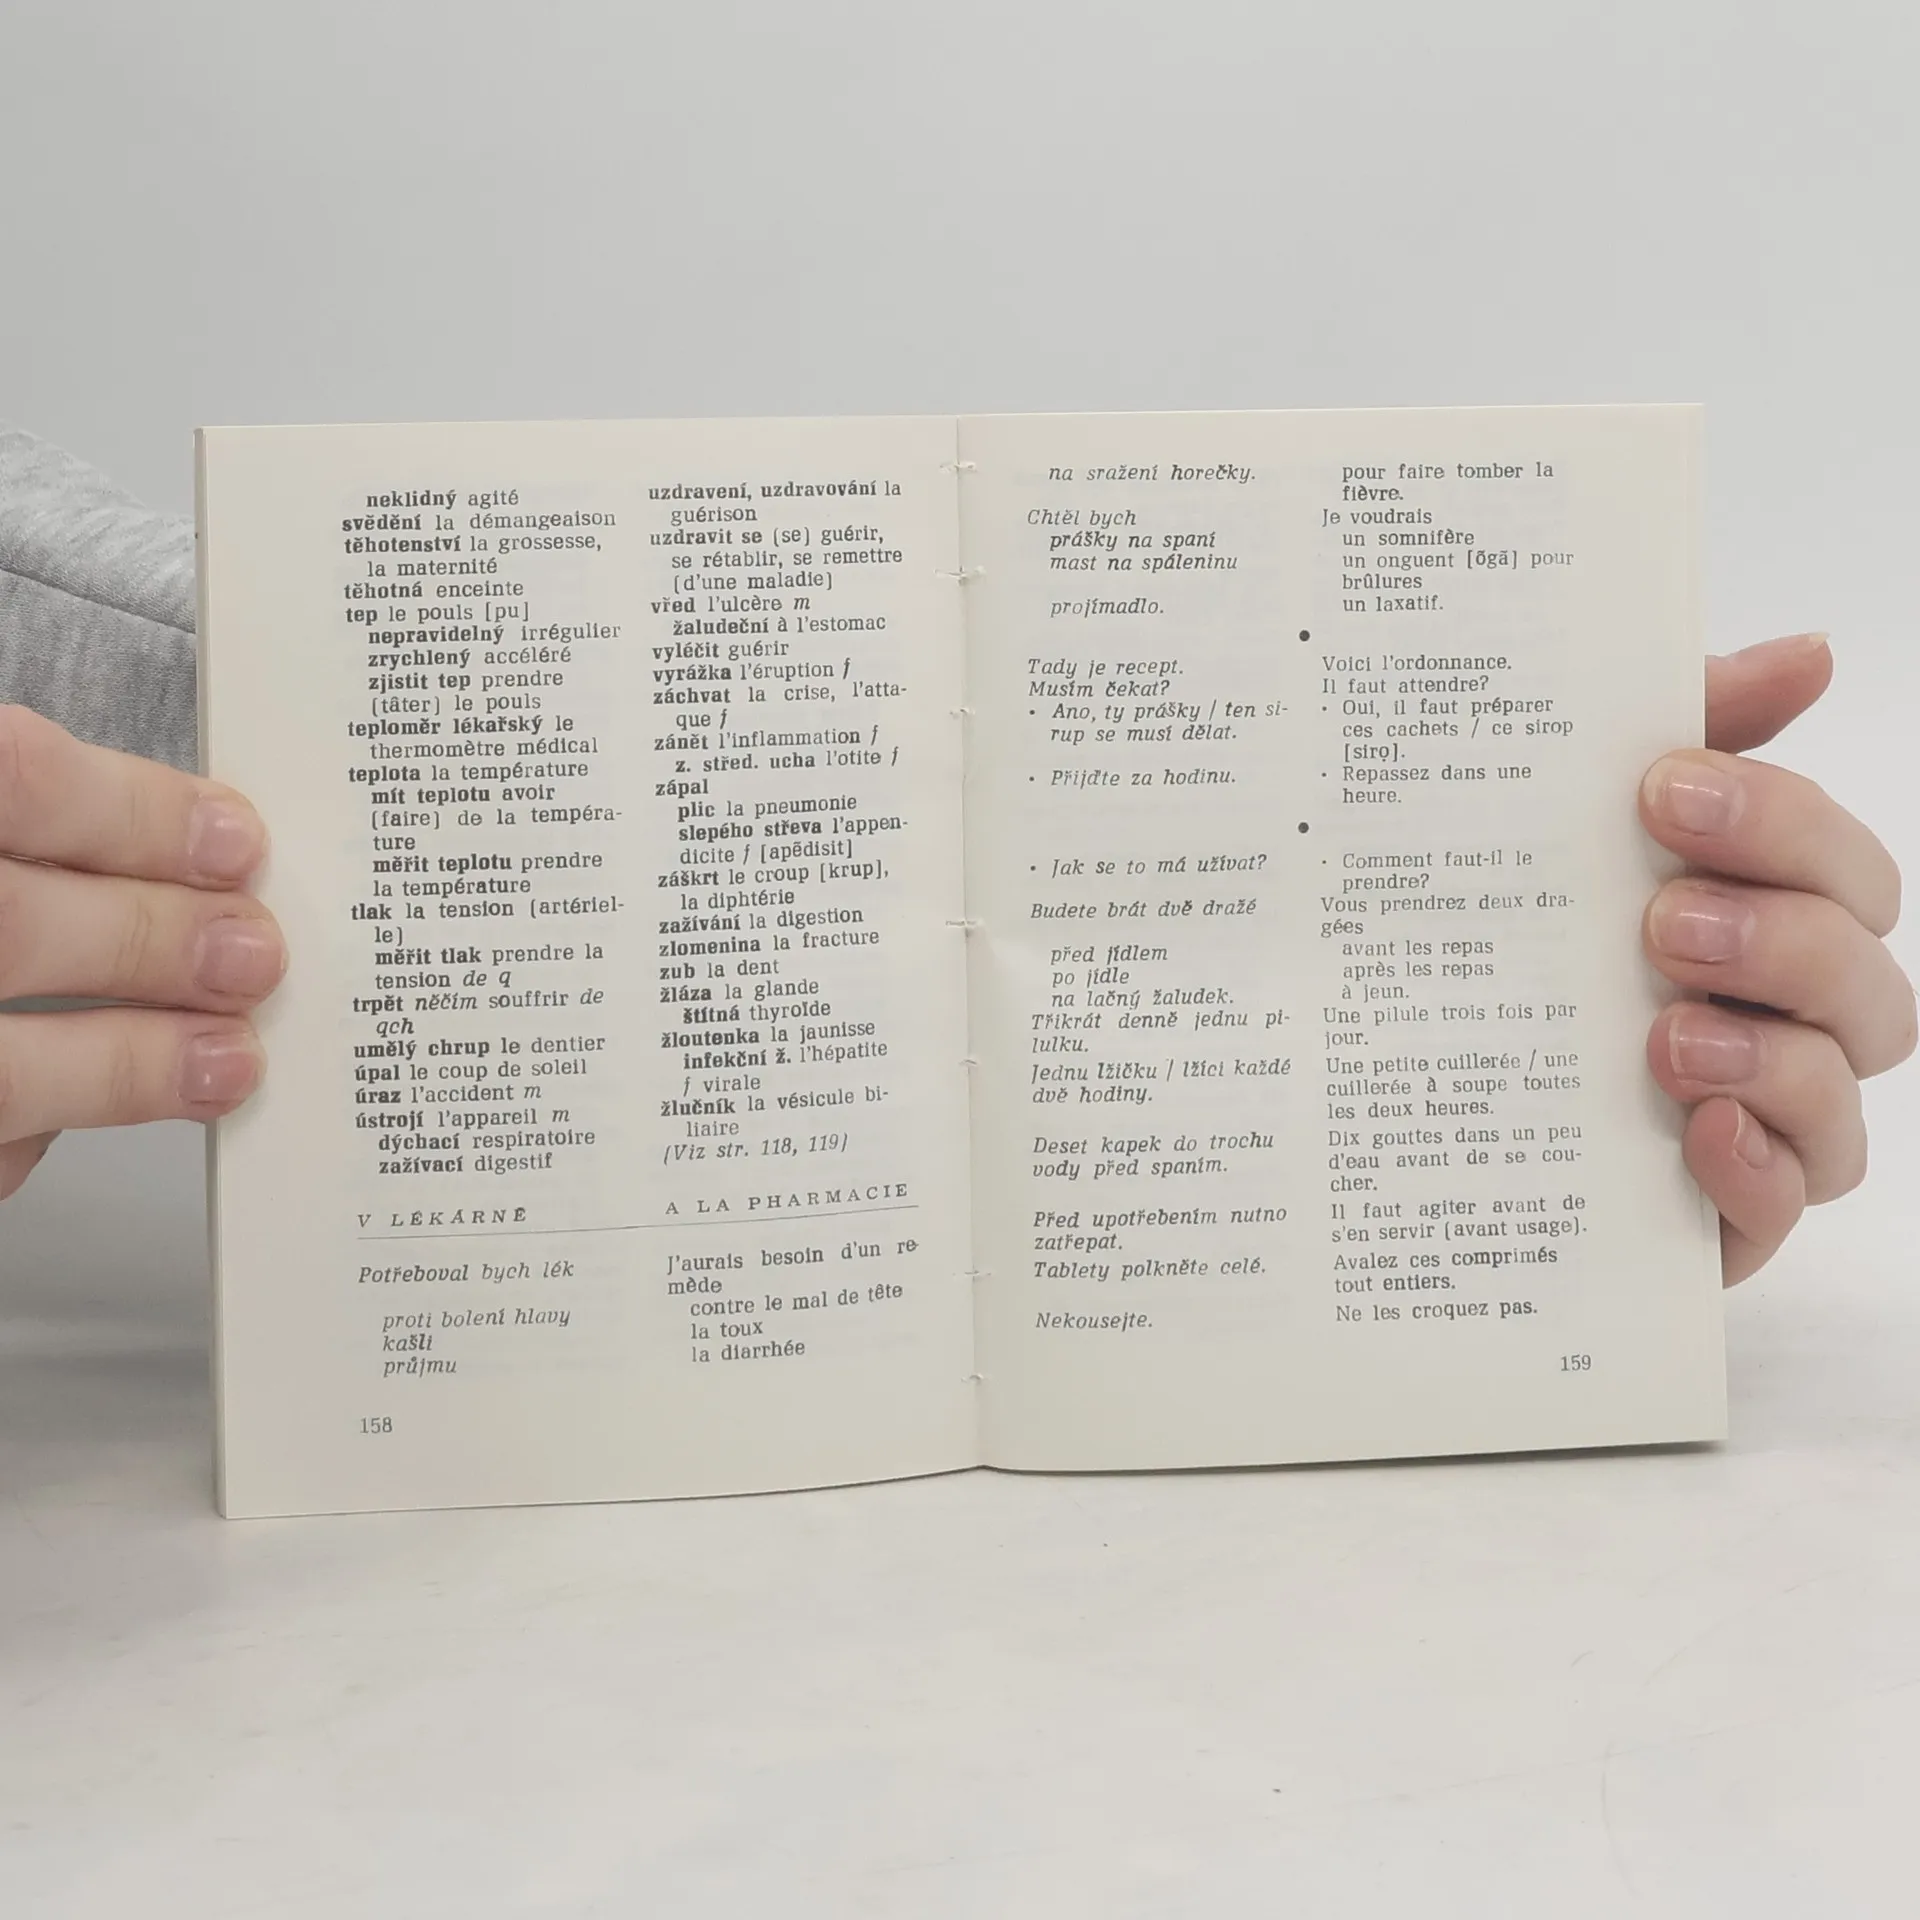 neklidný agité
svědění la démangeaison
těhotenství la grossesse,
la maternité
těhotná enceinte
tep le pouls [pu]
nepravidelný irrégulier
zrychlený accéléré
zjistit tep prendre
(tâter) le pouls
teploměr lékařský le
thermomètre médical
teplota la température
mít teplotu avoir
(faire) de la tempéra-
ture
měřit teplotu prendre
la température
tlak la tension (artériel-
le)
měřit tlak prendre la
tension de q
trpět něčím souffrir de
qch
umělý chrup le dentier
úpal le coup de soleil
úraz l'accident m
ústrojí l'appareil m
dýchací respiratoire
zažívací digestif
uzdravení, uzdravování la
guérison
uzdravit se (se) guérir,
se rétablir, se remettre
(d'une maladie)
vřed l'ulcère m
žaludeční à l'estomac
vyléčit guérir
vyrážka l'éruption f
záchvat la crise, l'atta-
que f
zánět l'inflammation f
z. střed. ucha l'otite f
zápal
plic la pneumonie
slepého střeva l'appen-
dicite f [apẽdisit]
záškrt le croup [krup],
la diphtérie
zažívání la digestion
zlomenina la fracture
zub la dent
žláza la glande
štítná thyroïde
žloutenka la jaunisse
infekční ž. l'hépatite
f virale
žlučník la vésicule bi-
liaire
(Viz str. 118, 119)
V LÉKÁRNĚ
A LA PHARMACIE
Potřeboval bych lék
proti bolení hlavy
kašli
průjmu
J'aurais besoin d'un re-
mède
contre le mal de tête
la toux
la diarrhée
158
na sražení horečky.
Chtěl bych
prášky na spaní
mast na spáleninu
projímadlo.
Tady je recept.
Musím čekat?
• Ano, ty prášky / ten si-
rup se musí dělat.
• Přijďte za hodinu.
• Jak se to má užívat?
Budete brát dvě dražé
před jídlem
po jídle
na lačný žaludek.
Třikrát denně jednu pi-
lulku.
Jednu lžičku / lžíci každé
dvě hodiny.
Deset kapek do trochu
vody před spaním.
Před upotřebením nutno
zatřepat.
Tablety polkněte celé.
Nekousejte.
pour faire tomber la
fièvre.
Je voudrais
un somnifère
un onguent [õgã] pour
brûlures
un laxatif.
●
Voici l'ordonnance.
Il faut attendre?
• Oui, il faut préparer
ces cachets / ce sirop
[siro̩].
• Repassez dans une
heure.
●
• Comment faut-il le
prendre?
Vous prendrez deux dra-
gées
avant les repas
après les repas
à jeun.
Une pilule trois fois par
jour.
Une petite cuillerée / une
cuillerée à soupe toutes
les deux heures.
Dix gouttes dans un peu
d'eau avant de se cou-
cher.
Il faut agiter avant de
s'en servir (avant usage).
Avalez ces comprimés
tout entiers.
Ne les croquez pas.
159